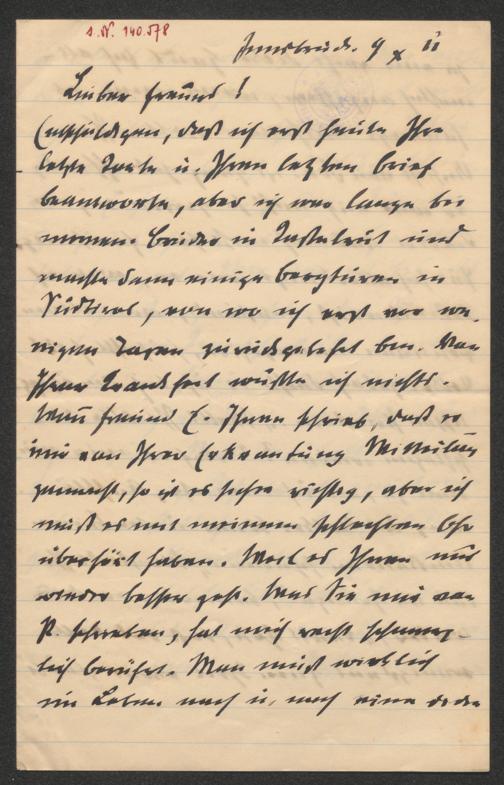 s. N. 140.578
Innsbruck. 9 X 11
Lieber Freund!
Entschuldigen, daß ich erst heute Ihre
letzte Karte u. Ihren letzten Brief
beantworte, aber ich war lange bei
meinem Bruder in Kastelrut und
machte dann einige Bergturen in
Südtirol, von wo ich erst vor we-
nigen Tagen zurückgekehrt bin. Von
Ihrer Krankheit wußte ich nichts.
Wenn Freund E. Ihnen schrieb, daß er
mir von Ihrer Erkrankung Mitteilung
gemacht, so ist es sicher richtig, aber ich
muß es mit meinem schlechten Ohr
überhört haben. Weil es Ihnen nur
wieder besser geht. Was Sie mir von
P. schreiben, hat mich recht schmerz-
lich berührt. Man muß wirklich
im Leben nach u. nach eine